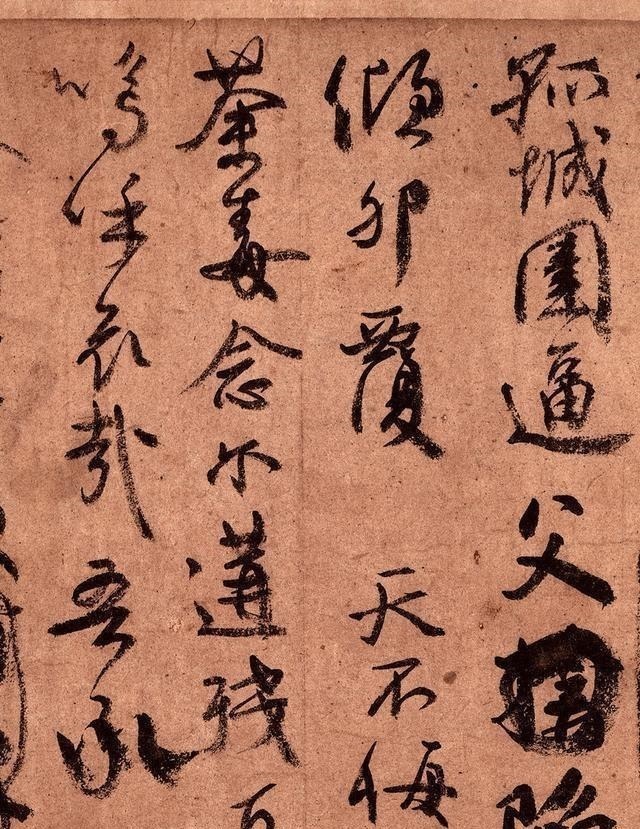 孤城圍逼父陷
傾卵覆天不悔
荼毒念尔遘殘百
嗚呼哀哉吾承